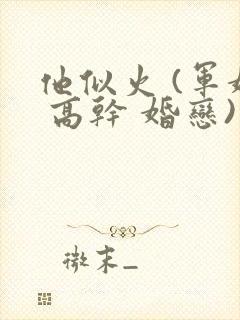 他似火(軍婚
高幹 婚戀)
微末_